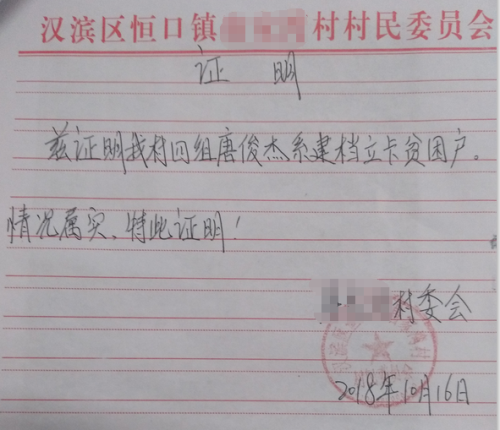 汉滨区恒口镇 村村民委员会
证 明
兹证明我村四组唐俊杰系建档立卡贫困户。
情况属实、特此证明!
村委会
2018年10月16日